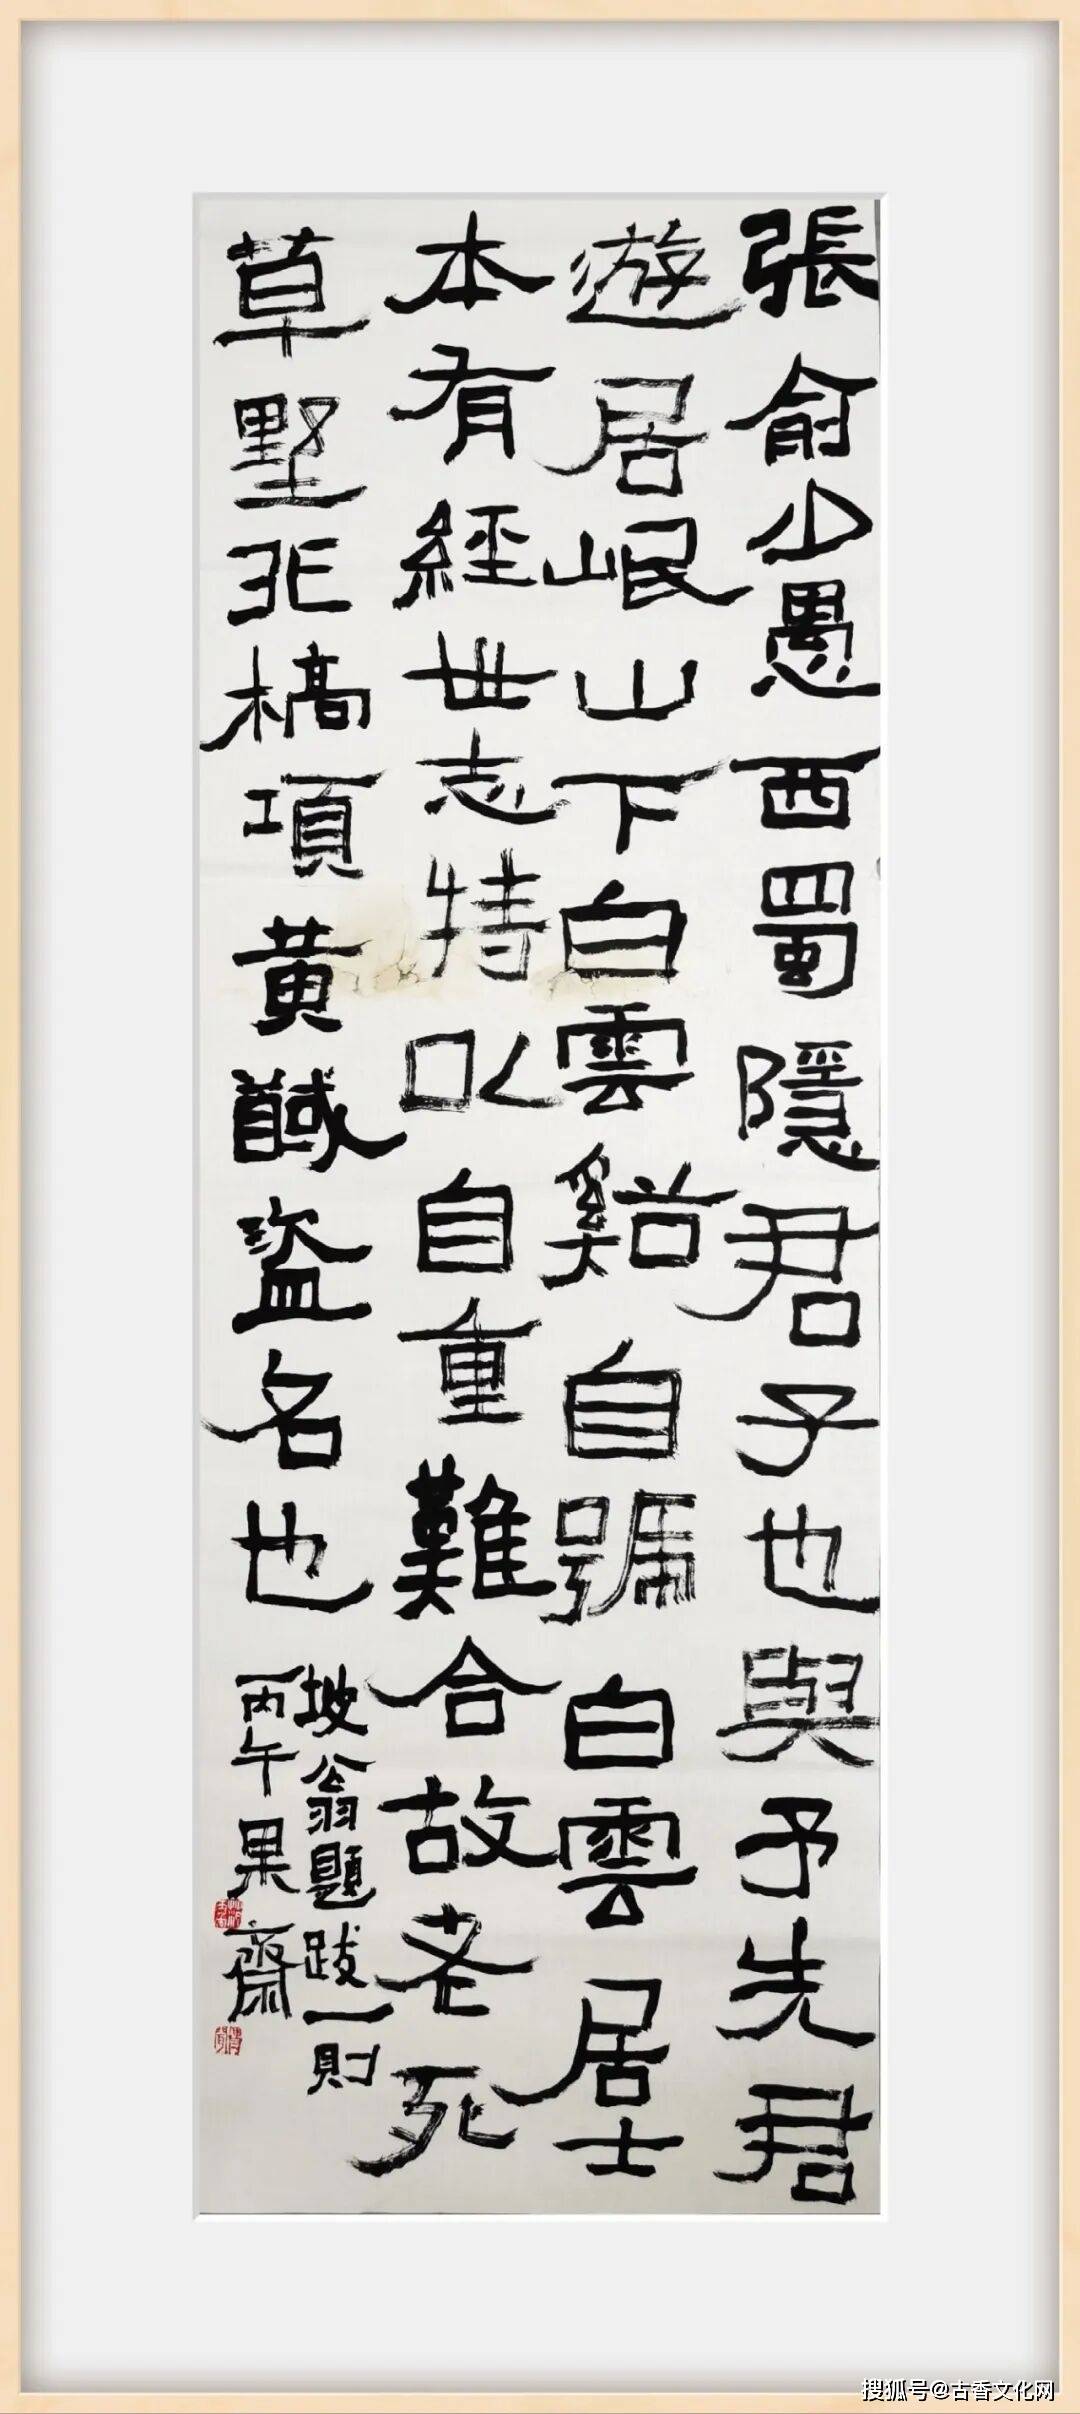 張俞少愚西蜀隱君子也與予先君
遊居岷山下白雲谿自號白雲居士
本有經世志特以自重難合故老死
草墅非槁項黃馘盜名也
坡翁題跋一則
丙午果齋
搜狐号@古香文化网